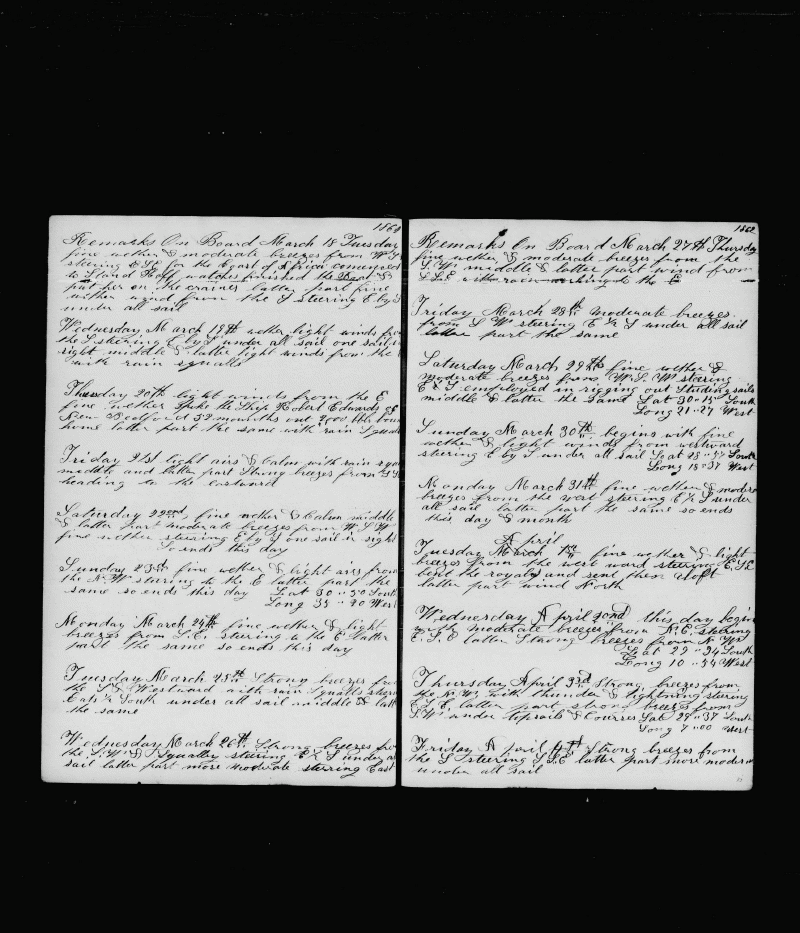 1862
Remarks On Board March 18 Tuesday
fine wether & moderate breezes from W
steering for the Coast of Africa
watches finished the Boat &
put her on the cranes latter part fine
wether wind from the S steering E by S
under all sail
Wednesday March 19th wether light winds
the S steering E by S under all sail one sail in
right middle & latter light winds from the
with rain squalls
Thursday 20th light winds from the E
fine wether spoke the Ship Robert Edwards of
New Bedford 32 months out 2000 bbls bound
home latter part the same with rain Squalls
Friday 21st light airs & Calm with rain
middle and latter part Strong breezes from
heading to the eastward
Saturday 22nd fine wether & Calm middle
& latter part moderate breezes from W S W
fine wether steering E by S one sail in sight
So ends this day
Sunday 23rd fine wether & light airs from
the N W stering to the E latter part the
same so ends this day Lat 30 " 50 South
Long 34 " 20 West
Monday March 24th fine wether & light
breezes from S.E. steering to the E latter
part the same so ends this day
Tuesday March 25th Strong breezes
the S & Westward with rain Squalls
E at ½ South under all sail middle &
the same
Wednesday March 26th Strong breezes
the S.W & Squally steering E ½ S under
sail latter part more moderate sterring East
1862
Remarks On Board March 27th Thursday
fine wether & moderate breezes from the
S.W. middle & latter part wind from
S.S.E with rain working to the E
Friday March 28th moderate breezes
from S W steering E ½ S under all sail
latter part the same
Saturday March 29th fine wether &
moderate breezes from W.S.W stering
E ½ S employed in rigging out Studing sails
middle & latter the same Lat 30 " 15 South
Long 21 " 27 West
Sunday March 30th begins with fine
wether & light winds from westward
steering E by S under all sail Lat 28 " 57 South
Long 18 " 37 West
Monday March 31st fine wether &
breezes from the west stering E ½ S under
all sail latter part the same so ends
this day & month
April
Tuesday March 1st fine wether & light
breezes from the west ward steering
bent the royals and sent them aloft
latter part wind North
Wednesday April 2nd this day begins
with moderate breezes from N.E. stering
E.S.E latter Strong breezes from N W
Lat 29 " 34 South
Long 10 " 44 West
Thursday April 3rd Strong breezes from
the N.W. with thunder & lightning stering
E.S.E. latter part strong breezes from
S.W under topsails & Courses Lat 29 " 37 South
Long 7 " 00 West
Friday April 4th Strong breezes from
the S steering S.E latter part more
under all sail